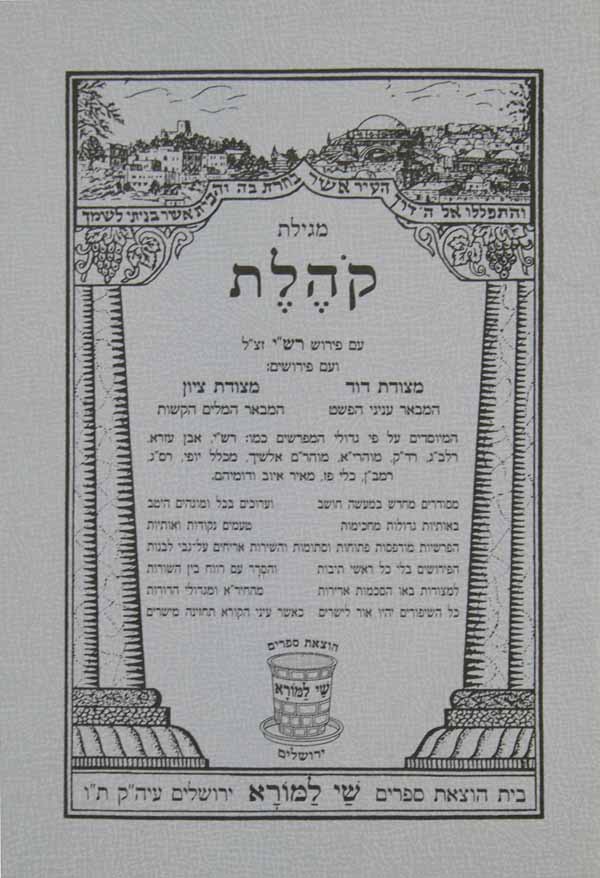 והתפללו אל ה' דרך העיר אשר בחרת בה והבית אשר בניתי לשמך
מגילת
קֹהֶלֶת
עם פירוש רש"י זצ"ל
ועם פירושים:
מצודת דוד מצודת ציון
המבאר עניני הפשט המבאר המלים הקשות
המיוסדים על פי גדולי המפרשים כמו: רש"י, אבן עזרא,
רלב"ג, רד"ק, מוהרי"א, מוהר"ם אלשיך, מכלל יופי, רס"ג,
רמב"ן, כלי פז, מאיר איוב ודומיהם.
מסודרים מחדש במעשה חושב וערוכים בכל ומוגהים היטב
באותיות גדולות מחכימות טעמים נקודות ואותיות
הפרשיות מודפסות פתוחות וסתומות והשירות אריחים על־גבי לבנות
הפירושים בלי כל ראשי תיבות והסדר עם רווח בין השורות
למצודות באו הסכמות אדירות מהחיד"א ומגדולי הדורות
כל השיפורים יהיו אור לישרים כאשר עיני הקורא תחזינה מישרים
הוצאת ספרים
שַׁי לַמּוֹרָא
ירושלים
בית הוצאת ספרים שַׁי לַמּוֹרָא ירושלים עיה"ק ת"ו